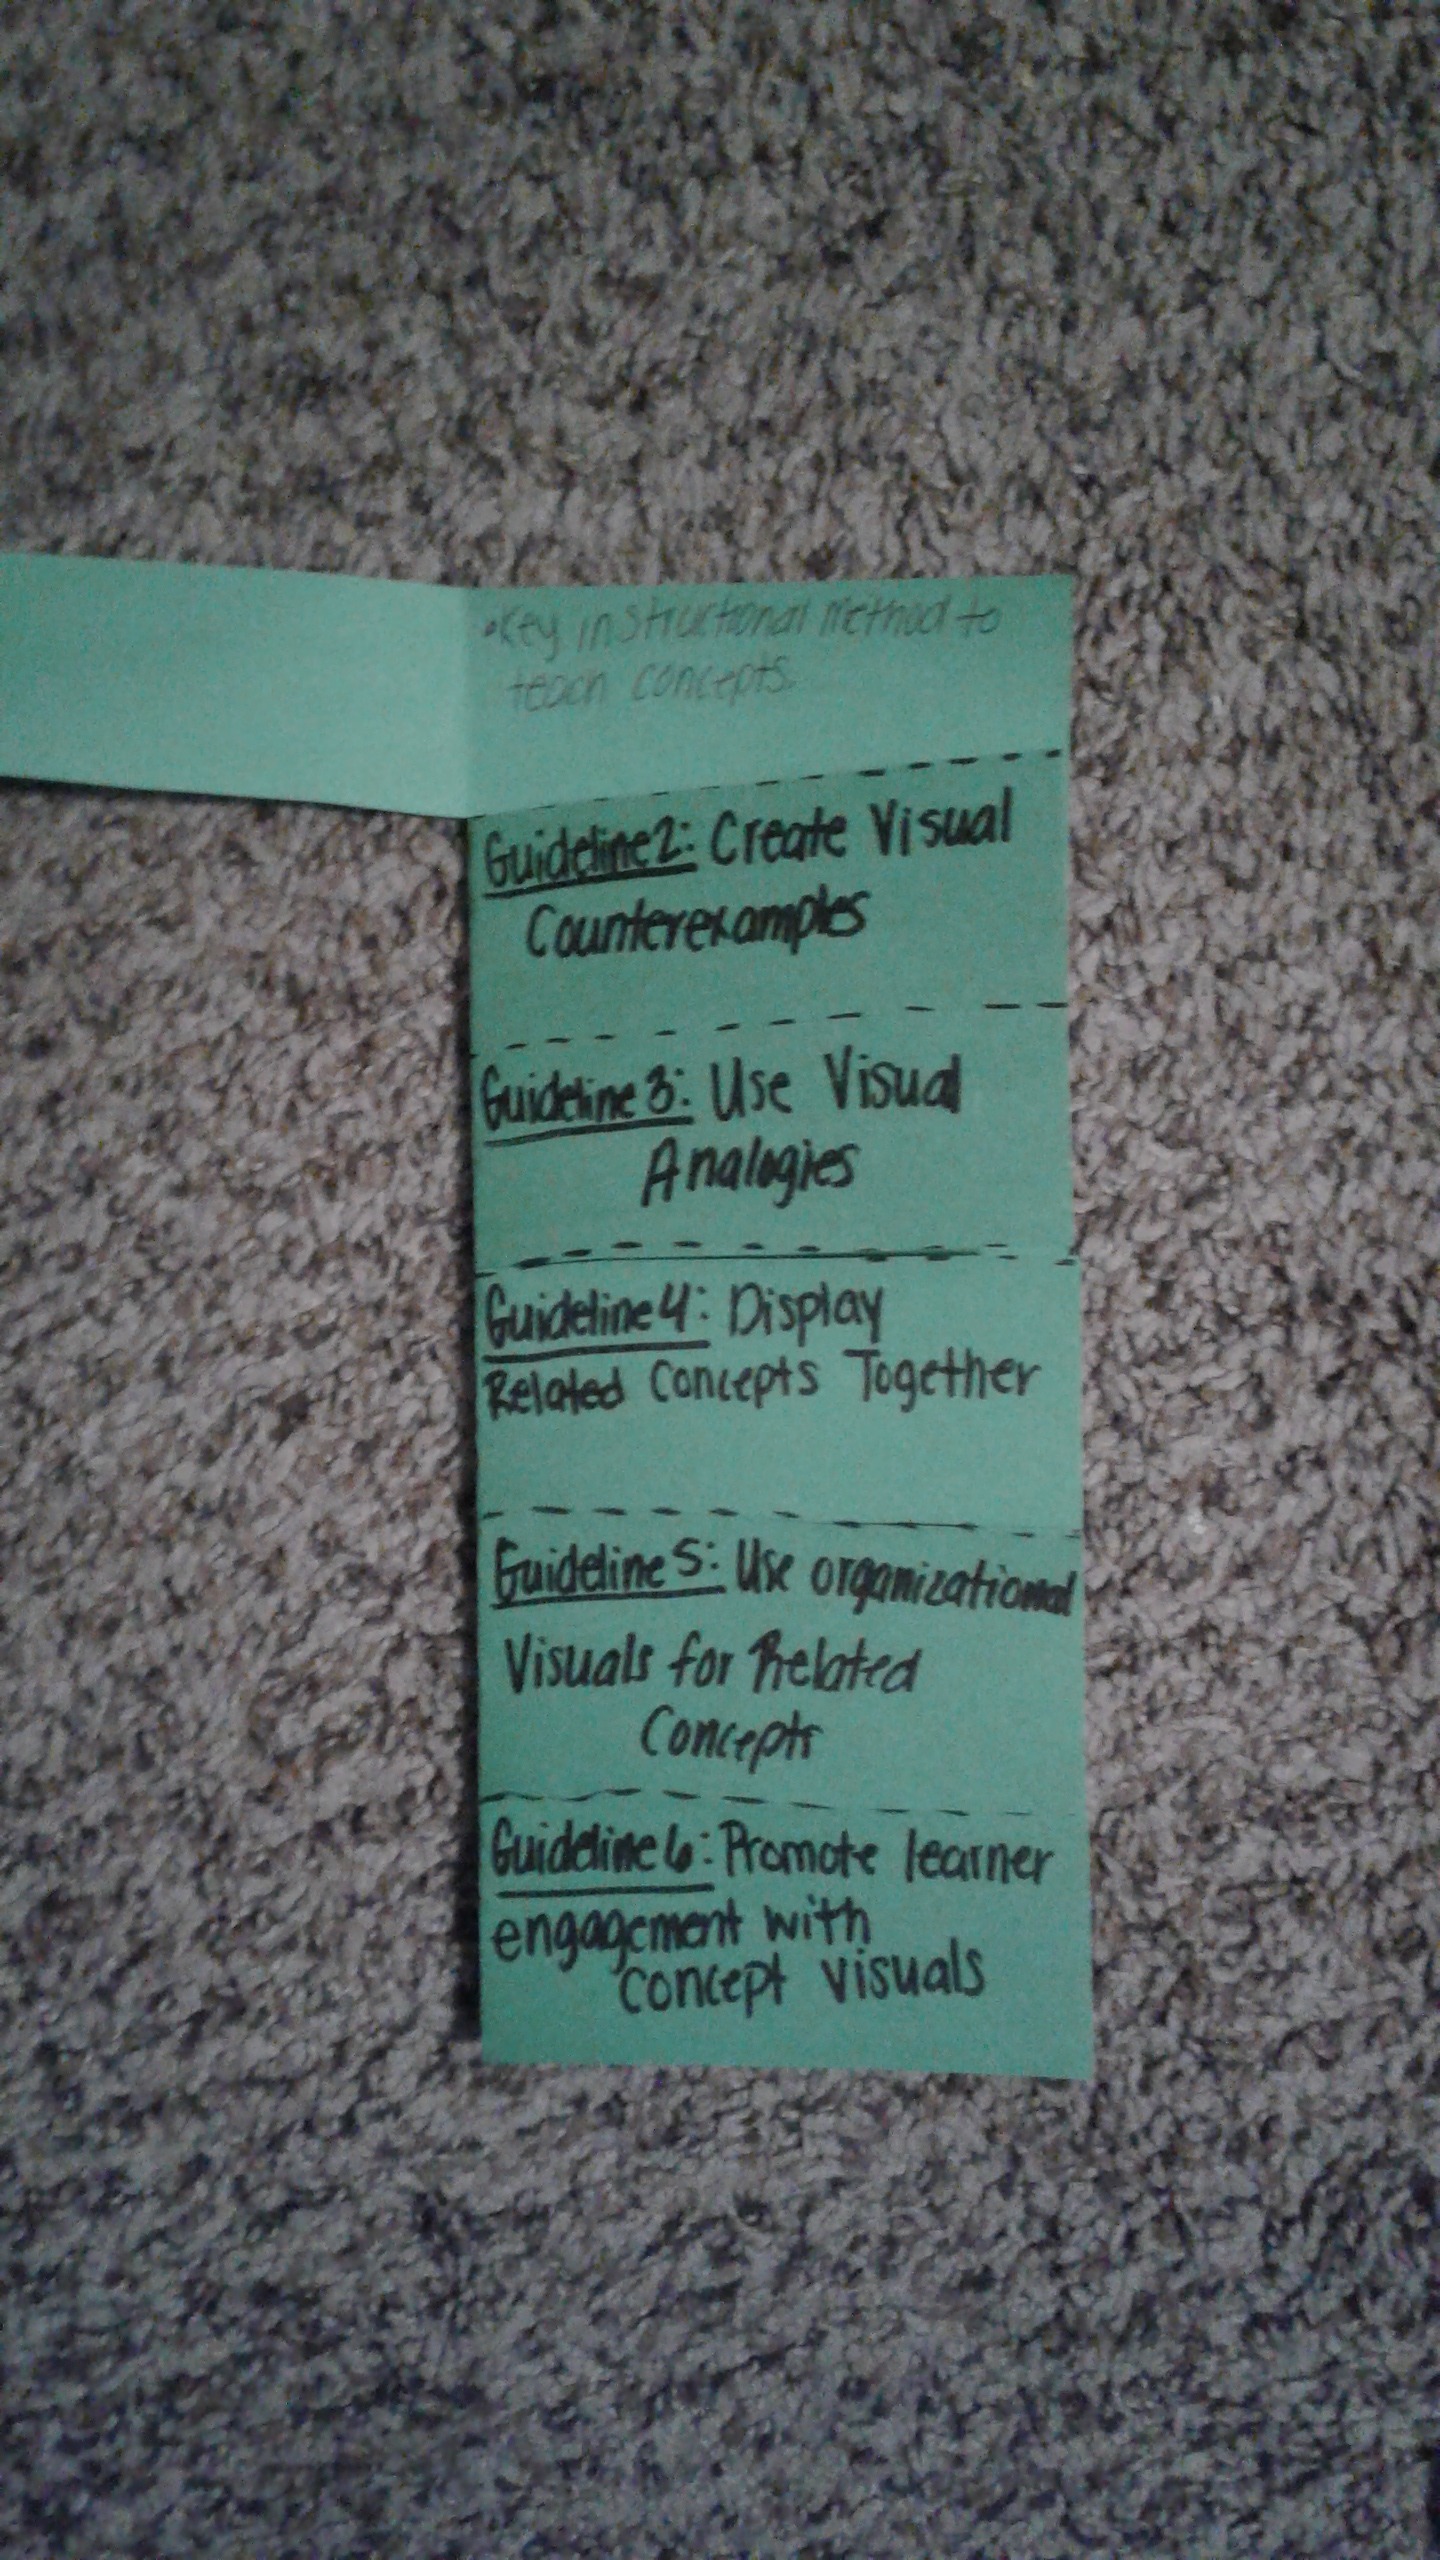 •Key instructional method to
teach concepts.
Guideline 2: Create Visual
Counterexamples
Guideline 3: Use Visual
Analogies
Guideline 4: Display
Related Concepts Together
Guideline 5: Use organizational
Visuals for Related
Concepts
Guideline 6: Promote learner
engagement with
concept visuals